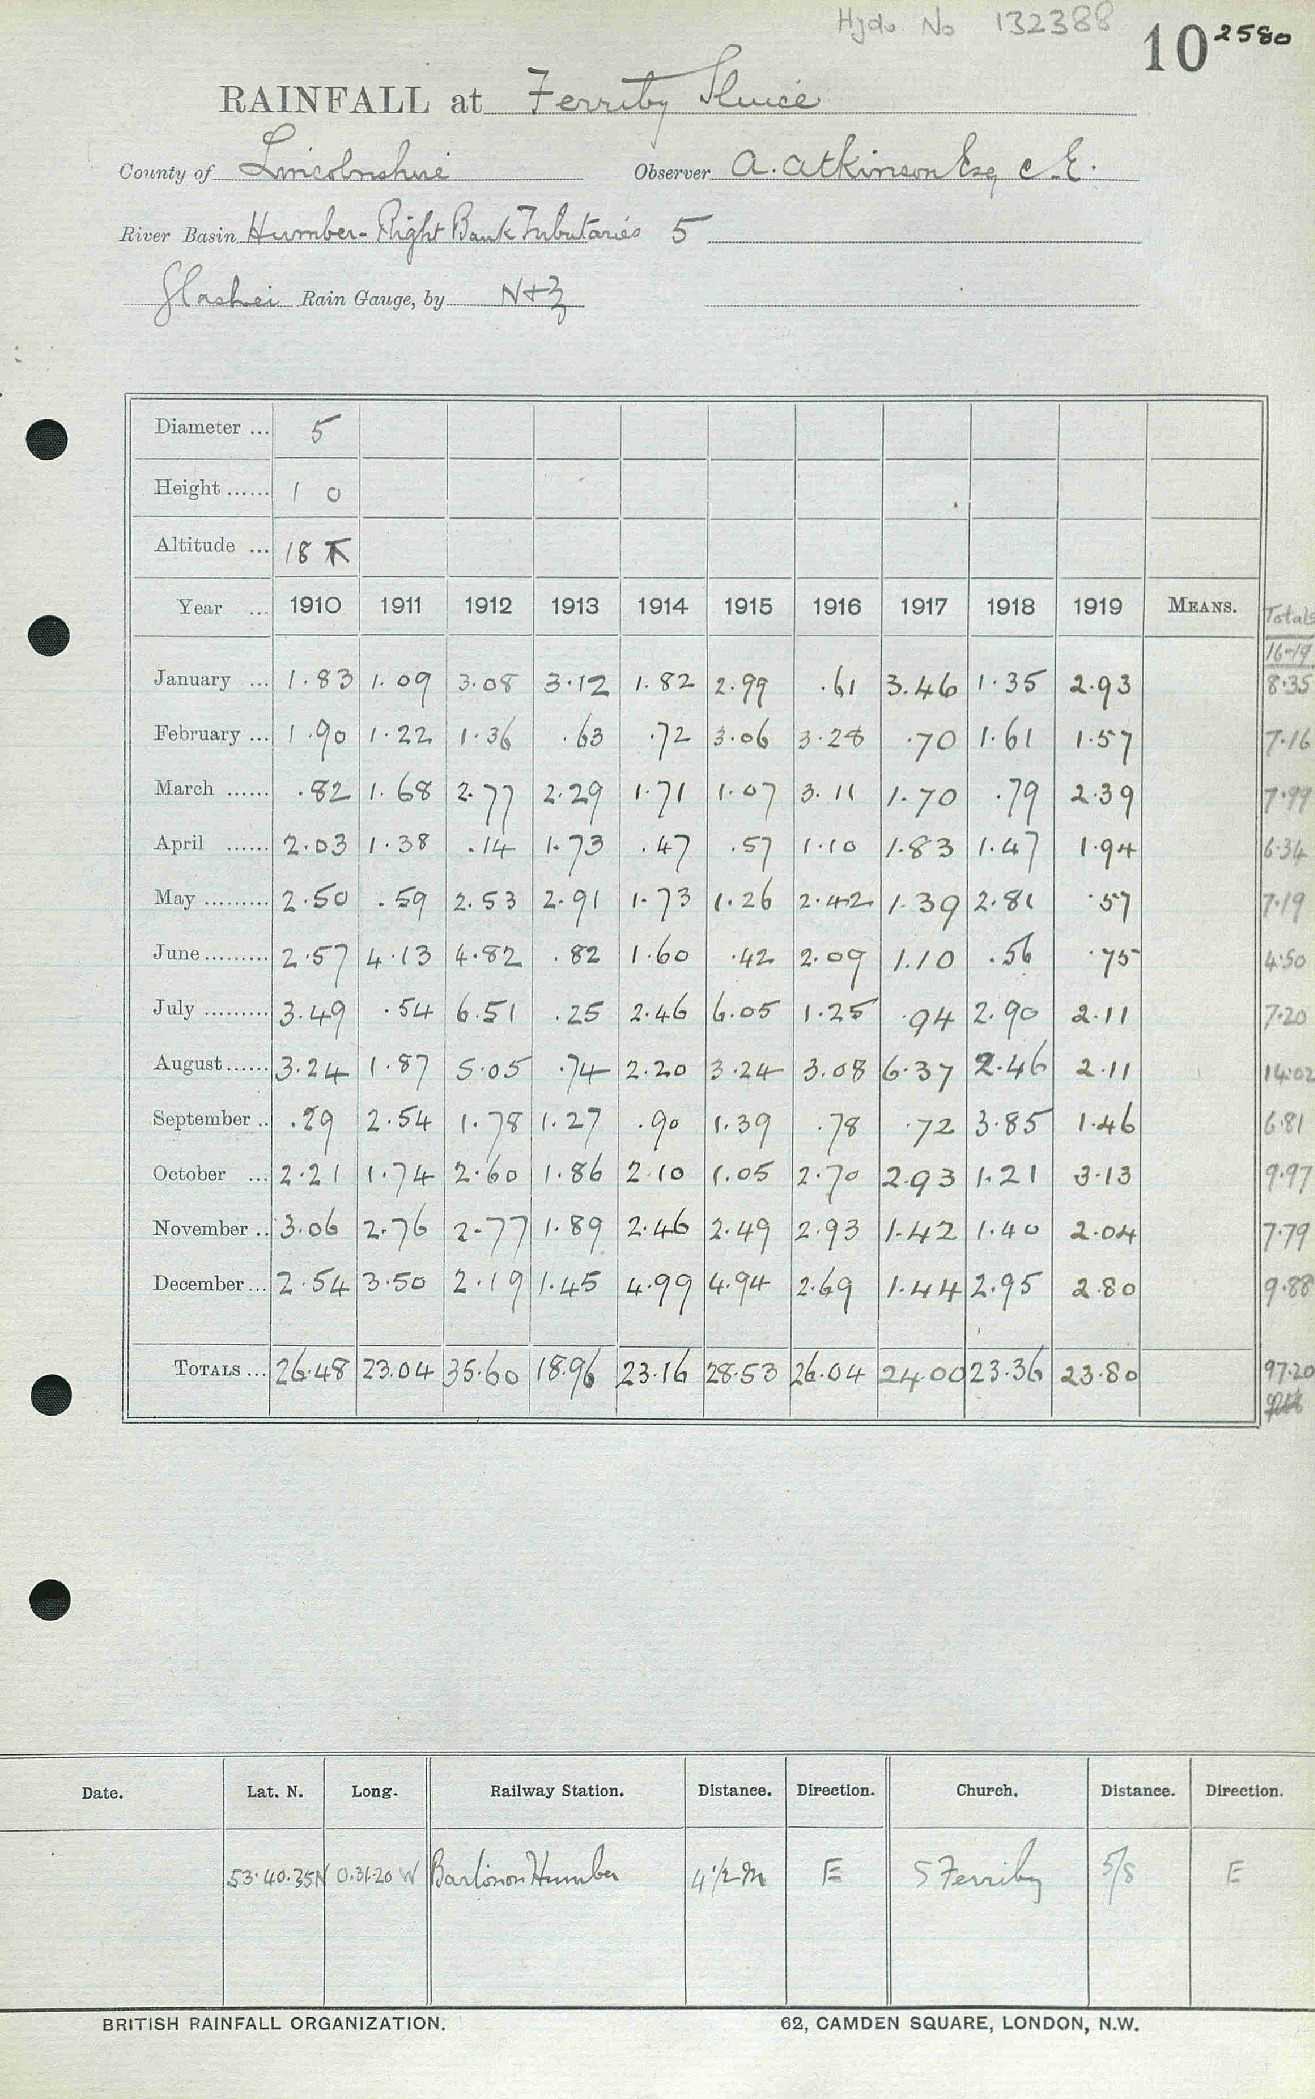 Hydro No 132388
10 2580
RAINFALL at Ferriby Sluice
County of Lincolnshire Observer A. Atkinson Esq C.E.
River Basin Humber - Right Bank Tributaries 5
Rain Gauge, by N+Z
Diameter ... 5
Height ...... 1 0
Altitude ... 18
Year ... 1910 1911 1912 1913 1914 1915 1916 1917 1918 1919 MEANS. Totals
16-19
January ... 1.83 1.09 3.08 3.12 1.82 2.99 .61 3.46 1.35 2.93 8.35
February ... 1.90 1.22 1.36 .63 .72 3.06 3.28 .70 1.61 1.57 7.16
March ...... .82 1.68 2.77 2.29 1.71 1.07 3.11 1.70 .79 2.39 7.99
April ...... 2.03 1.38 .14 1.73 .47 .57 1.10 1.83 1.47 1.94 6.34
May ......... 2.50 .59 2.53 2.91 1.73 1.26 2.42 1.39 2.81 .57 7.19
June ......... 2.57 4.13 4.82 .82 1.60 .42 2.09 1.10 .56 .75 4.50
July ......... 3.49 .54 6.51 .25 2.46 6.05 1.25 .94 2.90 2.11 7.20
August ...... 3.24 1.87 5.05 .74 2.20 3.24 3.08 6.37 2.46 2.11 14.02
September .. .29 2.54 1.78 1.27 .90 1.39 .78 .72 3.85 1.46 6.81
October ... 2.21 1.74 2.60 1.86 2.10 1.05 2.70 2.93 1.21 3.13 9.97
November .. 3.06 2.76 2.77 1.89 2.46 2.49 2.93 1.42 1.40 2.04 7.79
December ... 2.54 3.50 2.19 1.45 4.99 4.94 2.69 1.44 2.95 2.80 9.88
TOTALS ... 26.48 23.04 35.60 18.96 23.16 28.53 26.04 24.00 23.36 23.80 97.20
Date. Lat. N. Long. Railway Station. Distance. Direction. Church. Distance. Direction.
53.40.35N 0.31.20 W Barton on Humber 4 1/2 m E S Ferriby 5/8 E
BRITISH RAINFALL ORGANIZATION. 62, CAMDEN SQUARE, LONDON, N.W.